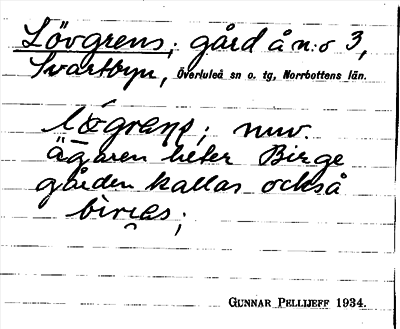 Lövgrens; gård å n:o 3,
Svartbyn, Överluleå sn o. tg, Norrbottens län.
nuv.
ägaren heter Birge
gården kallas också
GUNNAR PELLIJEFF 1934.